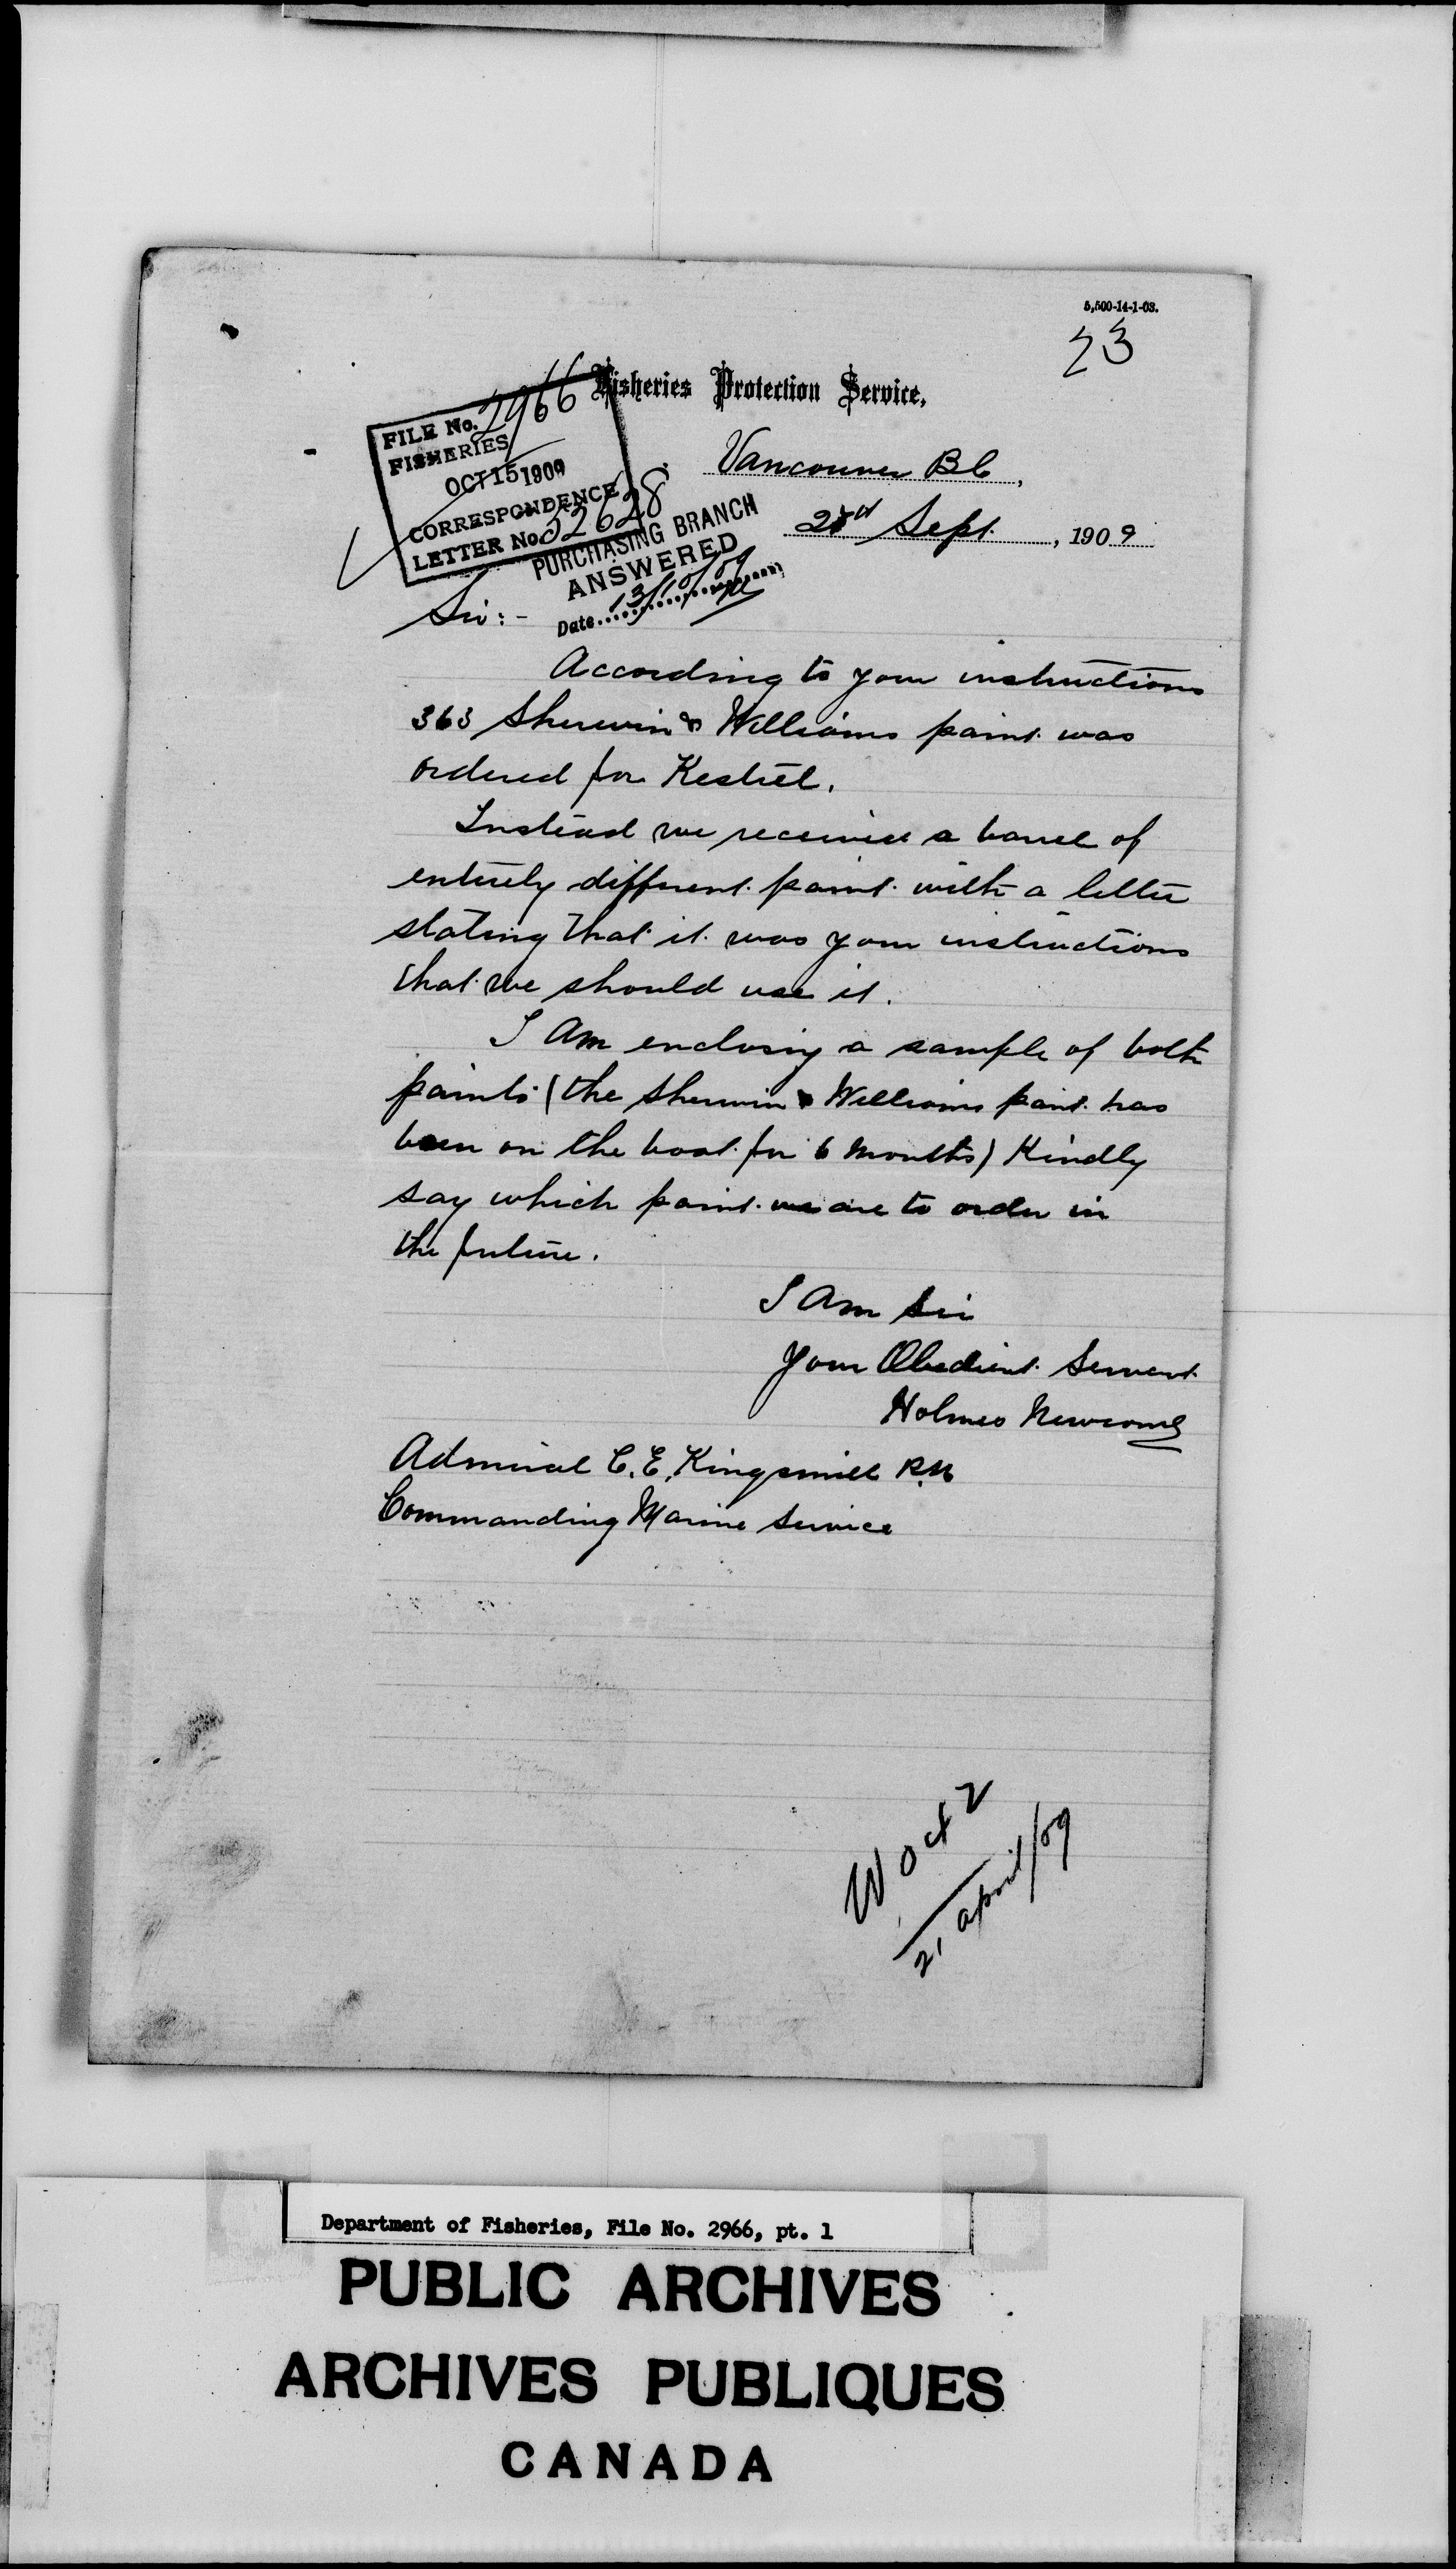 5,500-14-1-03.
23
Fisheries Protection Service.
FILE No. 2966
FISHERIES
OCT 15 1909
CORRESPONDENCE
LETTER No. 52628
Vancouver B C,
Sept. , 1909
PURCHASING BRANCH
ANSWERED
Date 13/10/09
Sir:-
According to your instructions
363 Sherwin & Williams paint was
ordered for Kestrel.
Instead we received a barrel of
entirely different paint with a letter
stating that it was your instructions
that we should use it.
I Am enclosing a sample of both
paints (the Sherwin & Williams paint has
been on the boat for 6 months) Kindly
say which paint we are to order in
the future.
I Am Sir
Your Obedient Servent
Holmes Newcomb
Admiral C. E. Kingsmill R.N
Commanding Marine Service
W Oct 2
21 April/09
Department of Fisheries, File No. 2966, pt. 1
PUBLIC ARCHIVES
ARCHIVES PUBLIQUES
CANADA